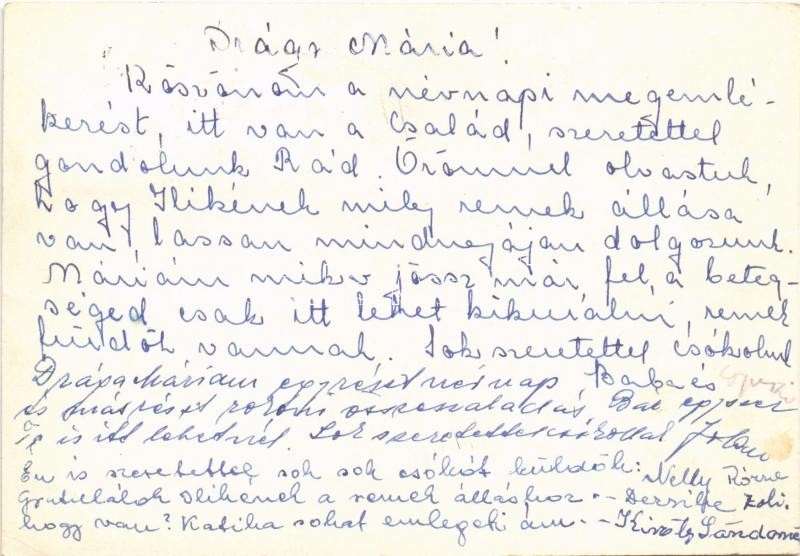 Drága Mária!
Köszönöm a névnapi megemlé-
kezést, itt van a család, szeretettel
gondolunk Rád. Örömmel olvastuk,
hogy Ilikének mily remek állása
van, lassan mindnyájan dolgozunk.
Máriám mikor jössz már fel, a beteg-
séged csak itt lehet kikurálni, remek
fürdők vannak. Sok szeretettel csókolunk
Drága Máriám egyrészt névnap Baba és
és másrészt rokoni összecsaladás, Bár egyszer
Te is itt lehetnél. Sok szeretettel csókollak Jolán
Én is szeretettel sok sok csókot küldök: Nelly
Gratulálok Ilikének a remek álláshoz -- Zoli.
hogy van? Katika sokat emlegeti ám. -- Sándorné